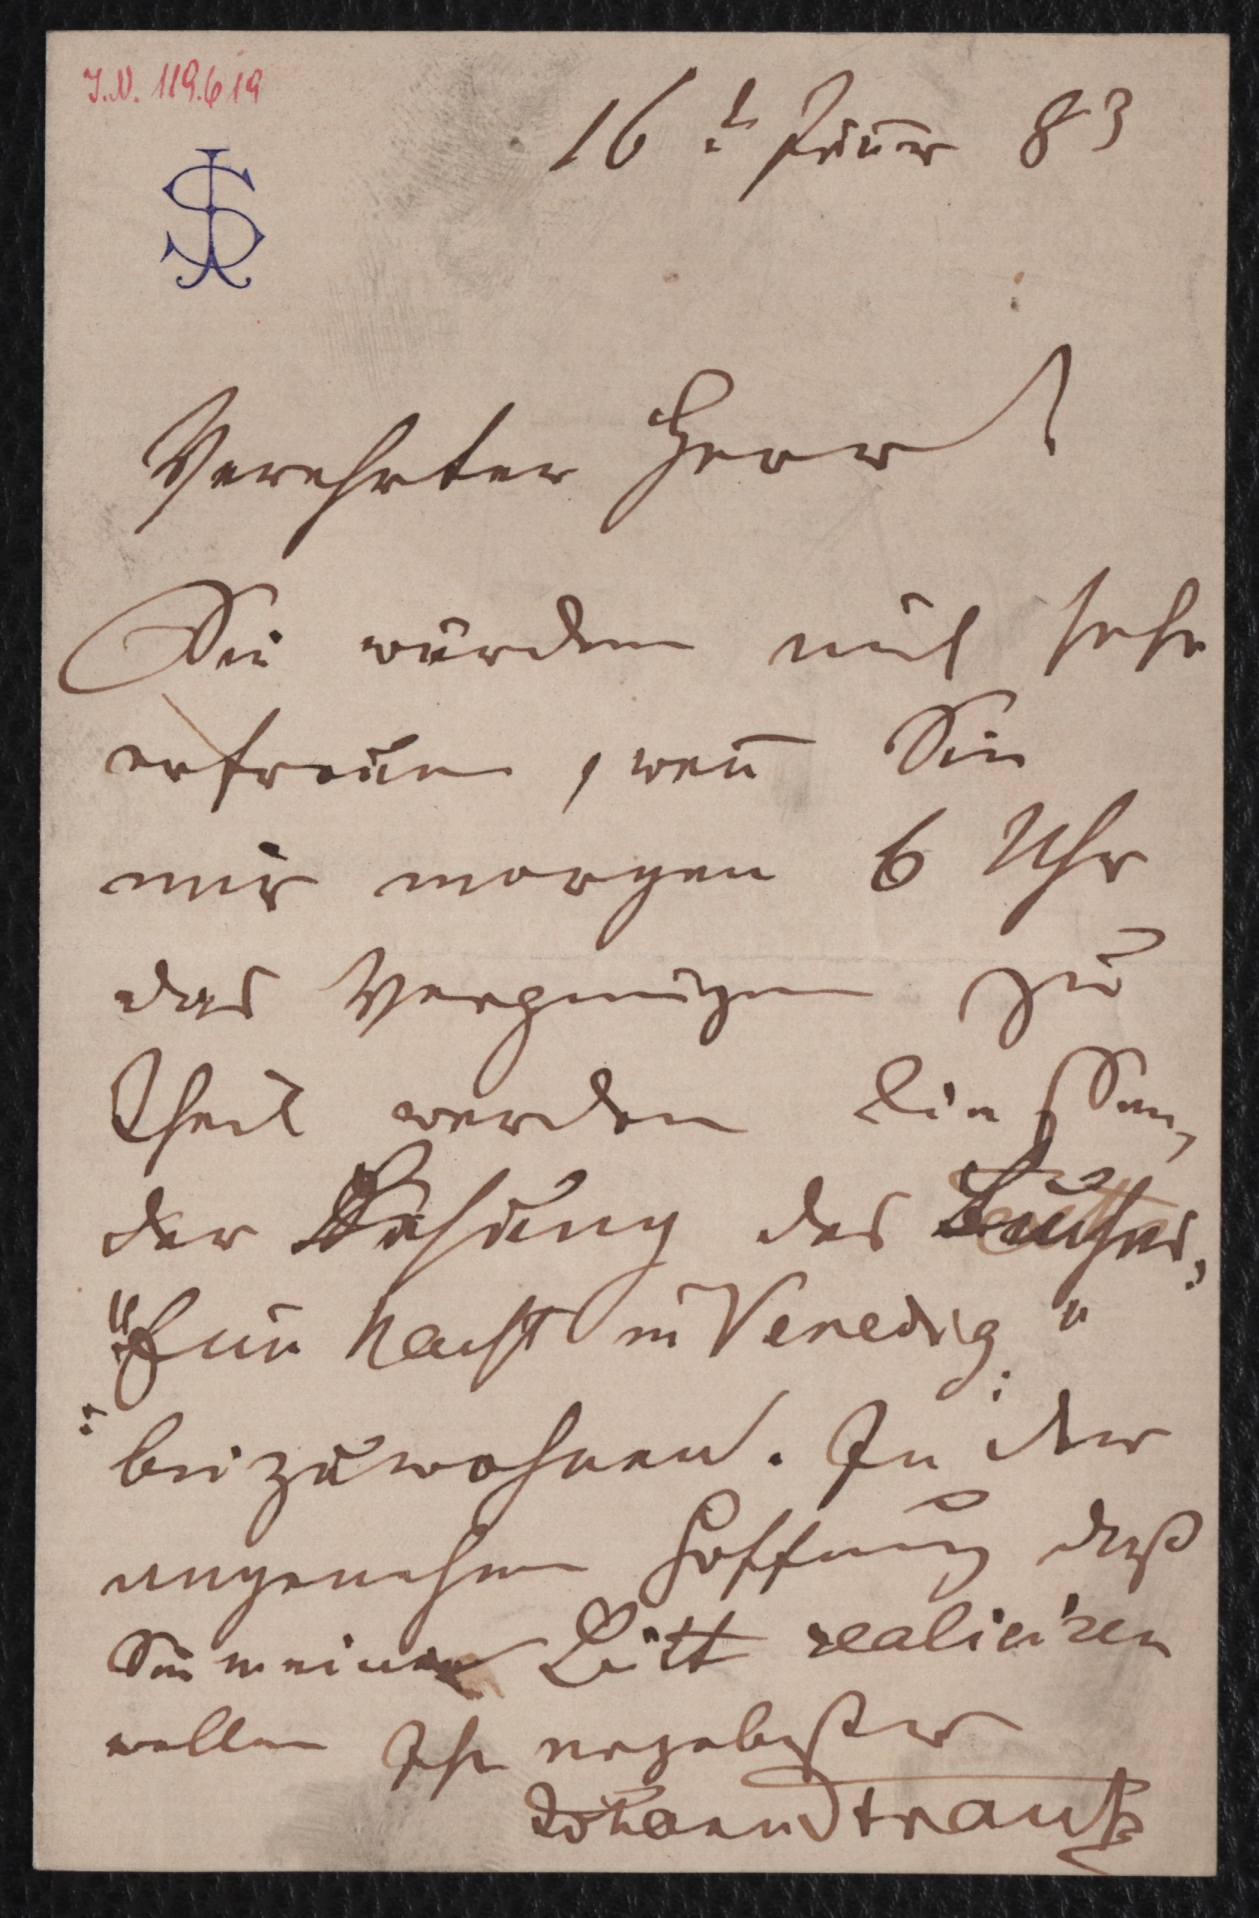 I.N. 119.619
16t Jänner 83
JS
Verehrter Herr!
Sie würden mich sehr
erfreuen, wen̄ Sie
mir morgen 6 Uhr
das Vergnügen zu
Theil werden liessen,
der Lesung des Buches,
"Eine Nacht in Venedig"
beizuwohnen. In der
angenehmen Hoffnung daß
Sie meine Bitte realisiren
wollen Ihr ergebenster
Johann Strauß